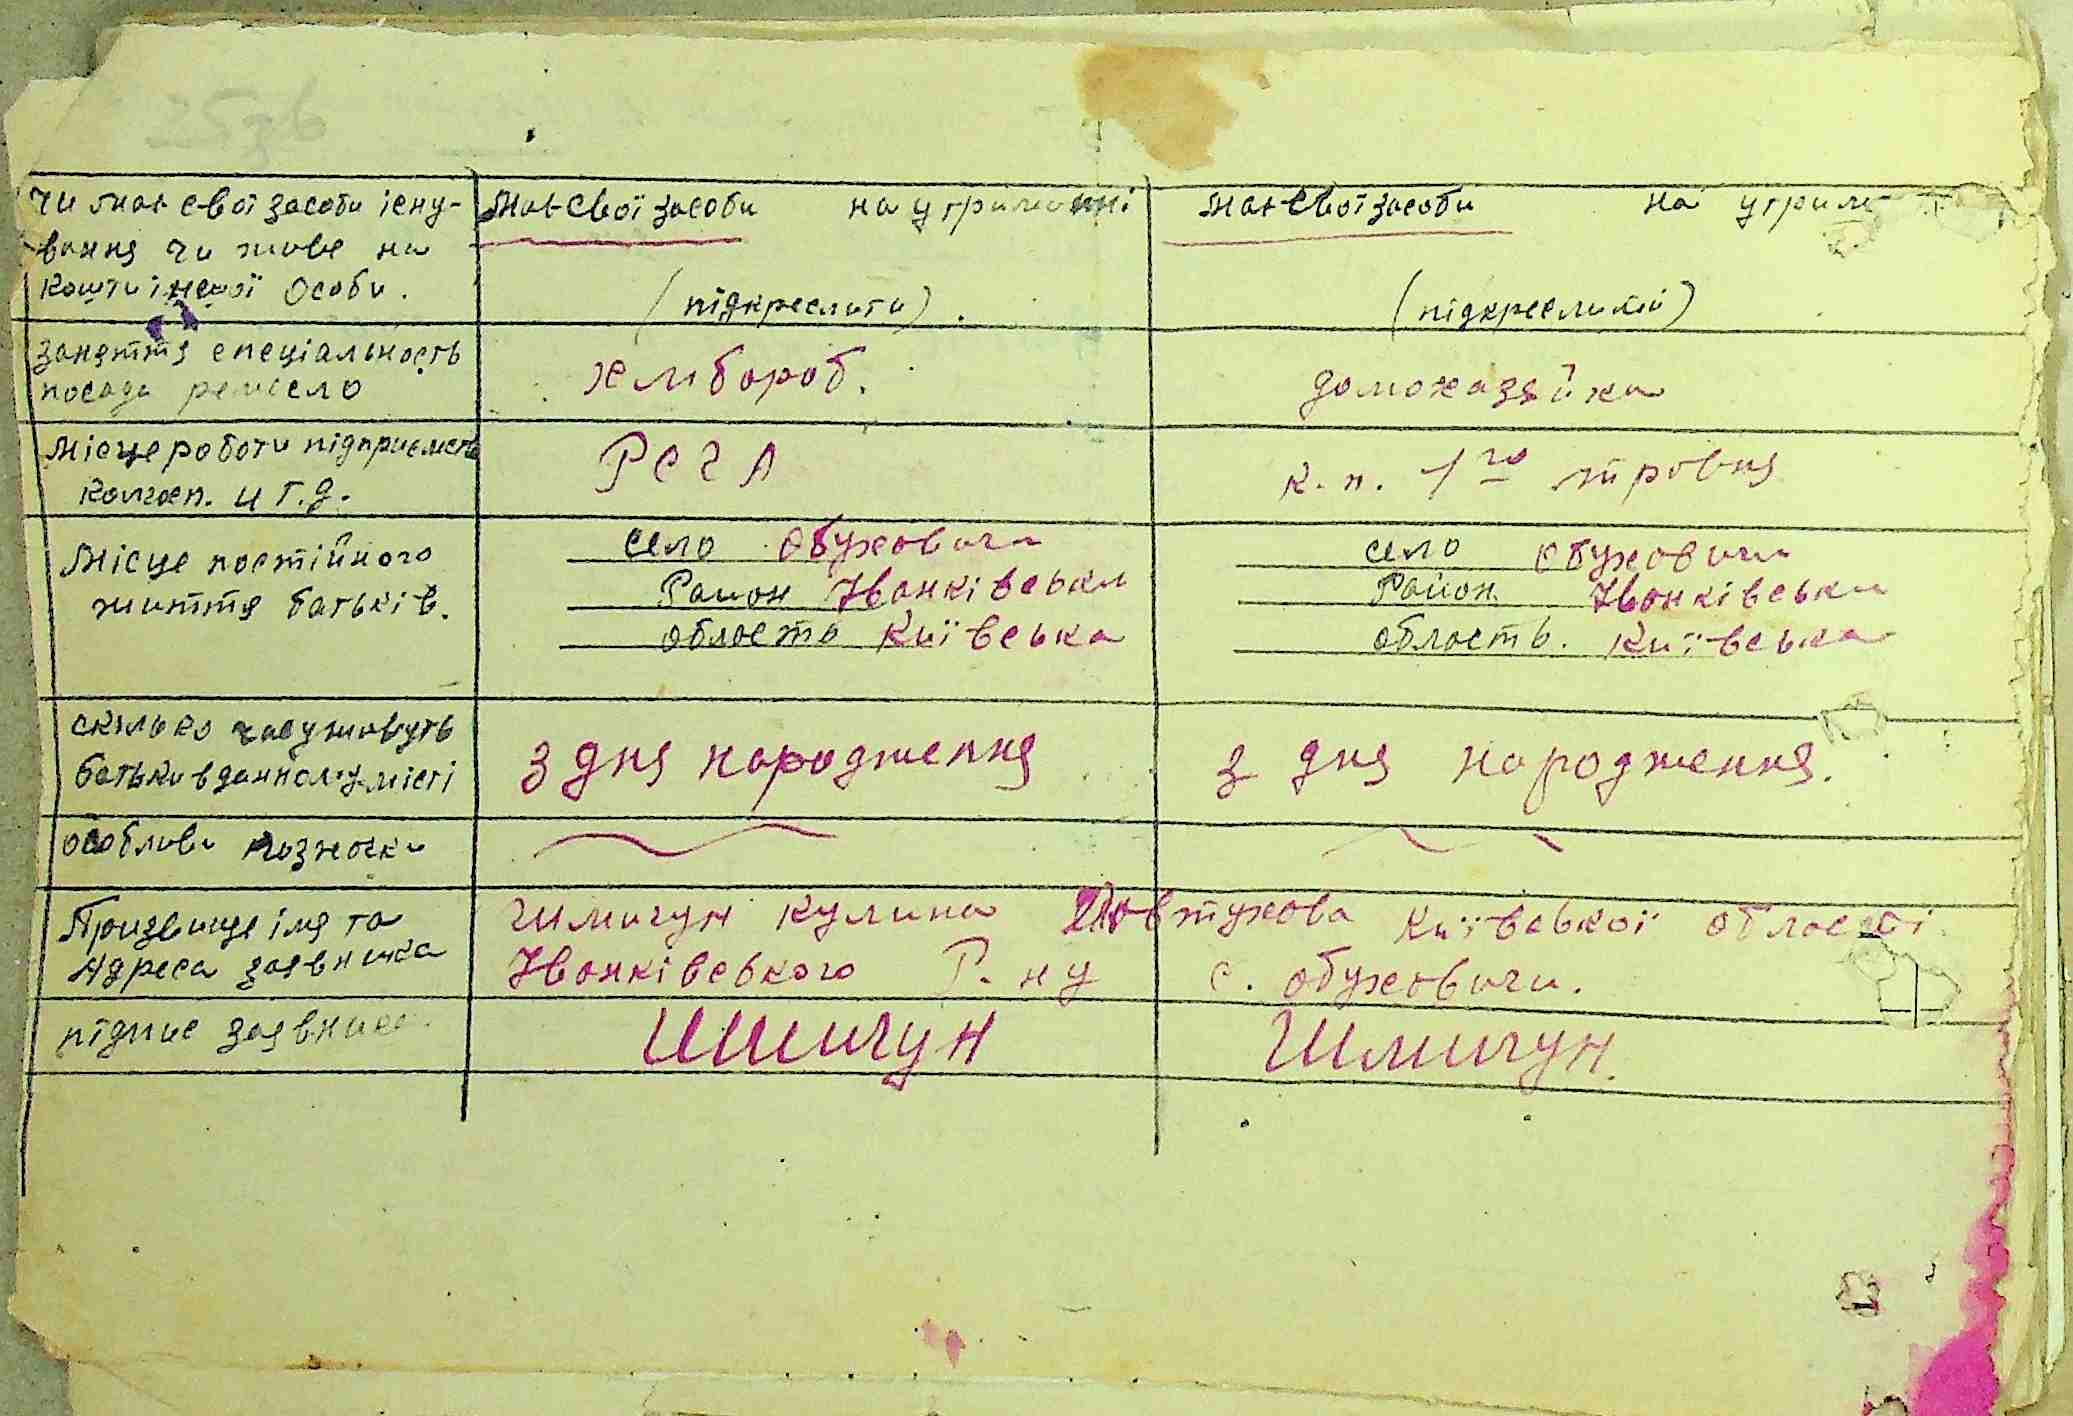 чи має свої засоби існу-
вання чи живе на
кошти іншої особи.
має свої засоби на утриманні
(підкреслити).
має свої засоби на утрим
(підкреслити)
заняття спеціальность
посада ремесло
хлибороб.
домохазяйка
Місце роботи підприємств
колгосп. и т.д.
к.п. 1го травня
Місце постійного
життя батьків.
село Обуховичи
Район Іванківськи
область Київська
село Обуховичи
Район Іванківськи
область. Київська
скілько часу живуть
батьки в данному місті
з дня народження
з дня народження.
особливи позночки
Призвище імя та
Адреса заявника
Шмигун Кулина Київської області
Іванківського Р-ну с. Обуховичи.
підпис заявника
Шмигун
Шмигун.